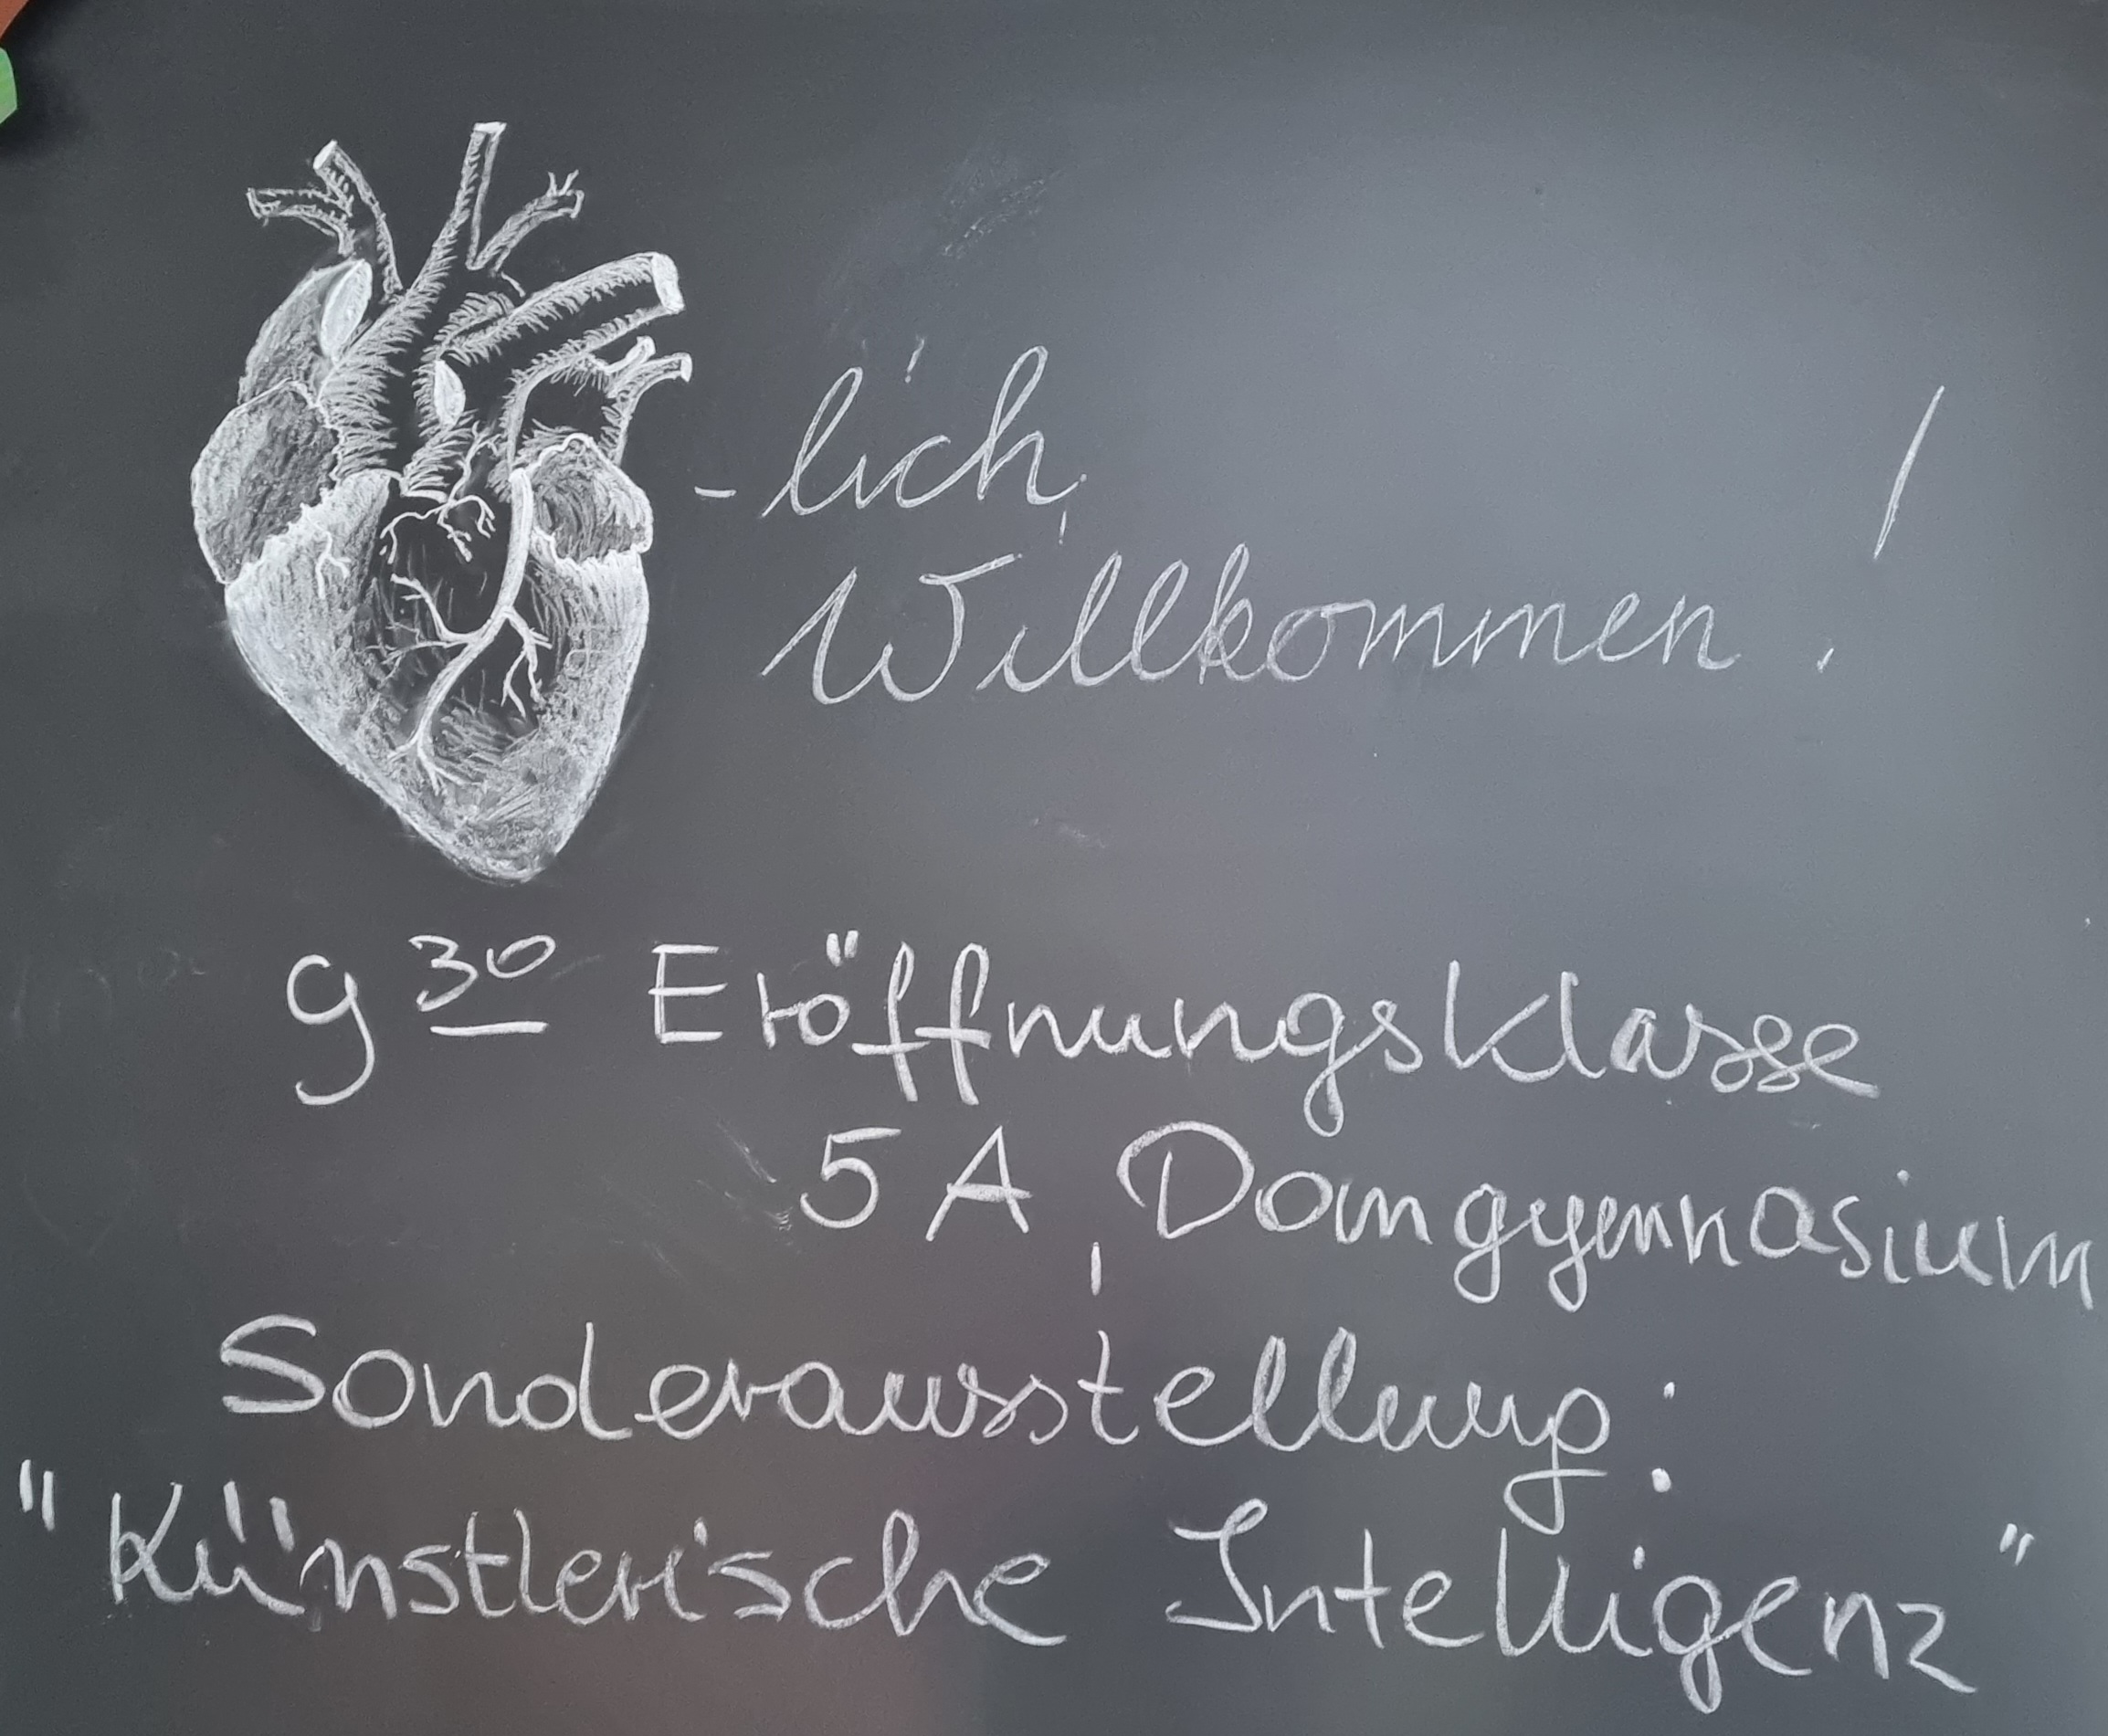 -lich
Willkommen!
9 30 Eröffnungsklasse
5A, Domgymnasium
Sonderausstellung:
"Künstlerische Intelligenz"